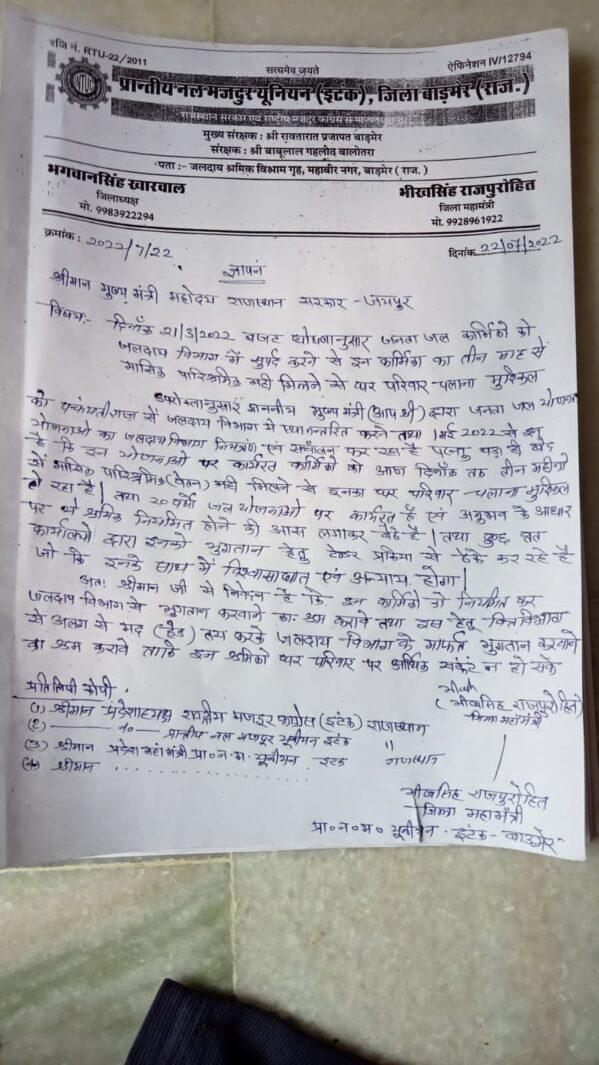 रजि नं. RTU-22/2011
सत्यमेव जयते
ऐफिनेशन IV/12794
प्रान्तीय नल मजदुर यूनियन (इंटक), जिला बाड़मेर (राज.)
राजस्थान सरकार एवं राष्टीय मजदुर कांग्रेस से मान्यता
मुख्य संरक्षक : श्री रावतारात प्रजापत बाड़मेर
संरक्षक : श्री बाबूलाल गहलोत बालोतरा
पता :- जलदाय श्रमिक विश्राम गृह, महावीर नगर, बाड़मेर ( राज. )
भगवानसिंह खारवाल
जिलाध्यक्ष
मो. 9983922294
भीखसिंह राजपुरोहित
जिला महामंत्री
मो. 9928961922
क्रमांक : 2022/7/22
दिनांक 22/07/2022
ज्ञापन
श्रीमान मुख्य मंत्री महोदय राजस्थान सरकार - जयपुर
विषय:- दिनाँक 21/3/2022 बजट घोषणानुसार जनता जल कार्मिको को
जलदाय विभाग में सुपर्द करने से इन कार्मिको का तीन माह से
मासिक पारिश्रमिक नही मिलने से घर परिवार चलाना मुश्किल
उपरोक्तानुसार माननीय मुख्य मंत्री (आप श्री) द्वारा जनता जल योजना
को से जलदाय विभाग में स्थानान्तरित करने तथा 1 मई 2022 से इन
योजनाओ का जलदाय विभाग नियंत्रण एवं संचालन कर रहा है परन्तु बड़ा ही खेद
है कि इन योजनाओ पर कार्यरत कार्मिको को आज दिनाँक तक तीन महीनो
से मासिक पारिश्रमिक (वेतन) नही मिलने से इनका घर परिवार चलाना मुश्किल
हो रहा है। तथा 20 वर्षो जल योजनाओ पर कार्यरत है एवं अनुभव के आधार
पर ये श्रमिक नियमित होने की आस लगाकर बैठे है। तथा कुछ
कार्यालयो द्वारा इनको भुगतान हेतु टेण्डर प्रक्रिया से ठेके कर रहे है
जो कि इनके साथ में विश्वासघात एवं अन्याय होगा।
अतः श्रीमान जी से निवेदन है कि इन कार्मिको को नियमित कर
जलदाय विभाग से भुगतान करवाने का श्रम करावे तथा इस हेतु वित्त विभाग
से अलग से मद (हैड) तय करके जलदाय विभाग के मार्फत भुगतान करवाने
का श्रम करावे ताकि इन श्रमिको घर परिवार पर आर्थिक संकट न हो सके
( भीखसिंह राजपुरोहित )
जिला महामंत्री
प्रतिलिपी कोपी
(1) श्रीमान प्रदेशाध्यक्ष राष्ट्रीय मजदूर कांग्रेस (इंटक) राजस्थान
(2) —— do —— प्रान्तीय नल मजदूर यूनीयन इंटक "
(3) श्रीमान प्रदेश महामंत्री प्रा॰न॰म॰ यूनीयन इंटक राजस्थान
(4) श्रीमान ..............
भीखसिंह राजपुरोहित
जिला महामंत्री
प्रा॰न॰म॰ यूनीयन इंटक - बाड़मेर